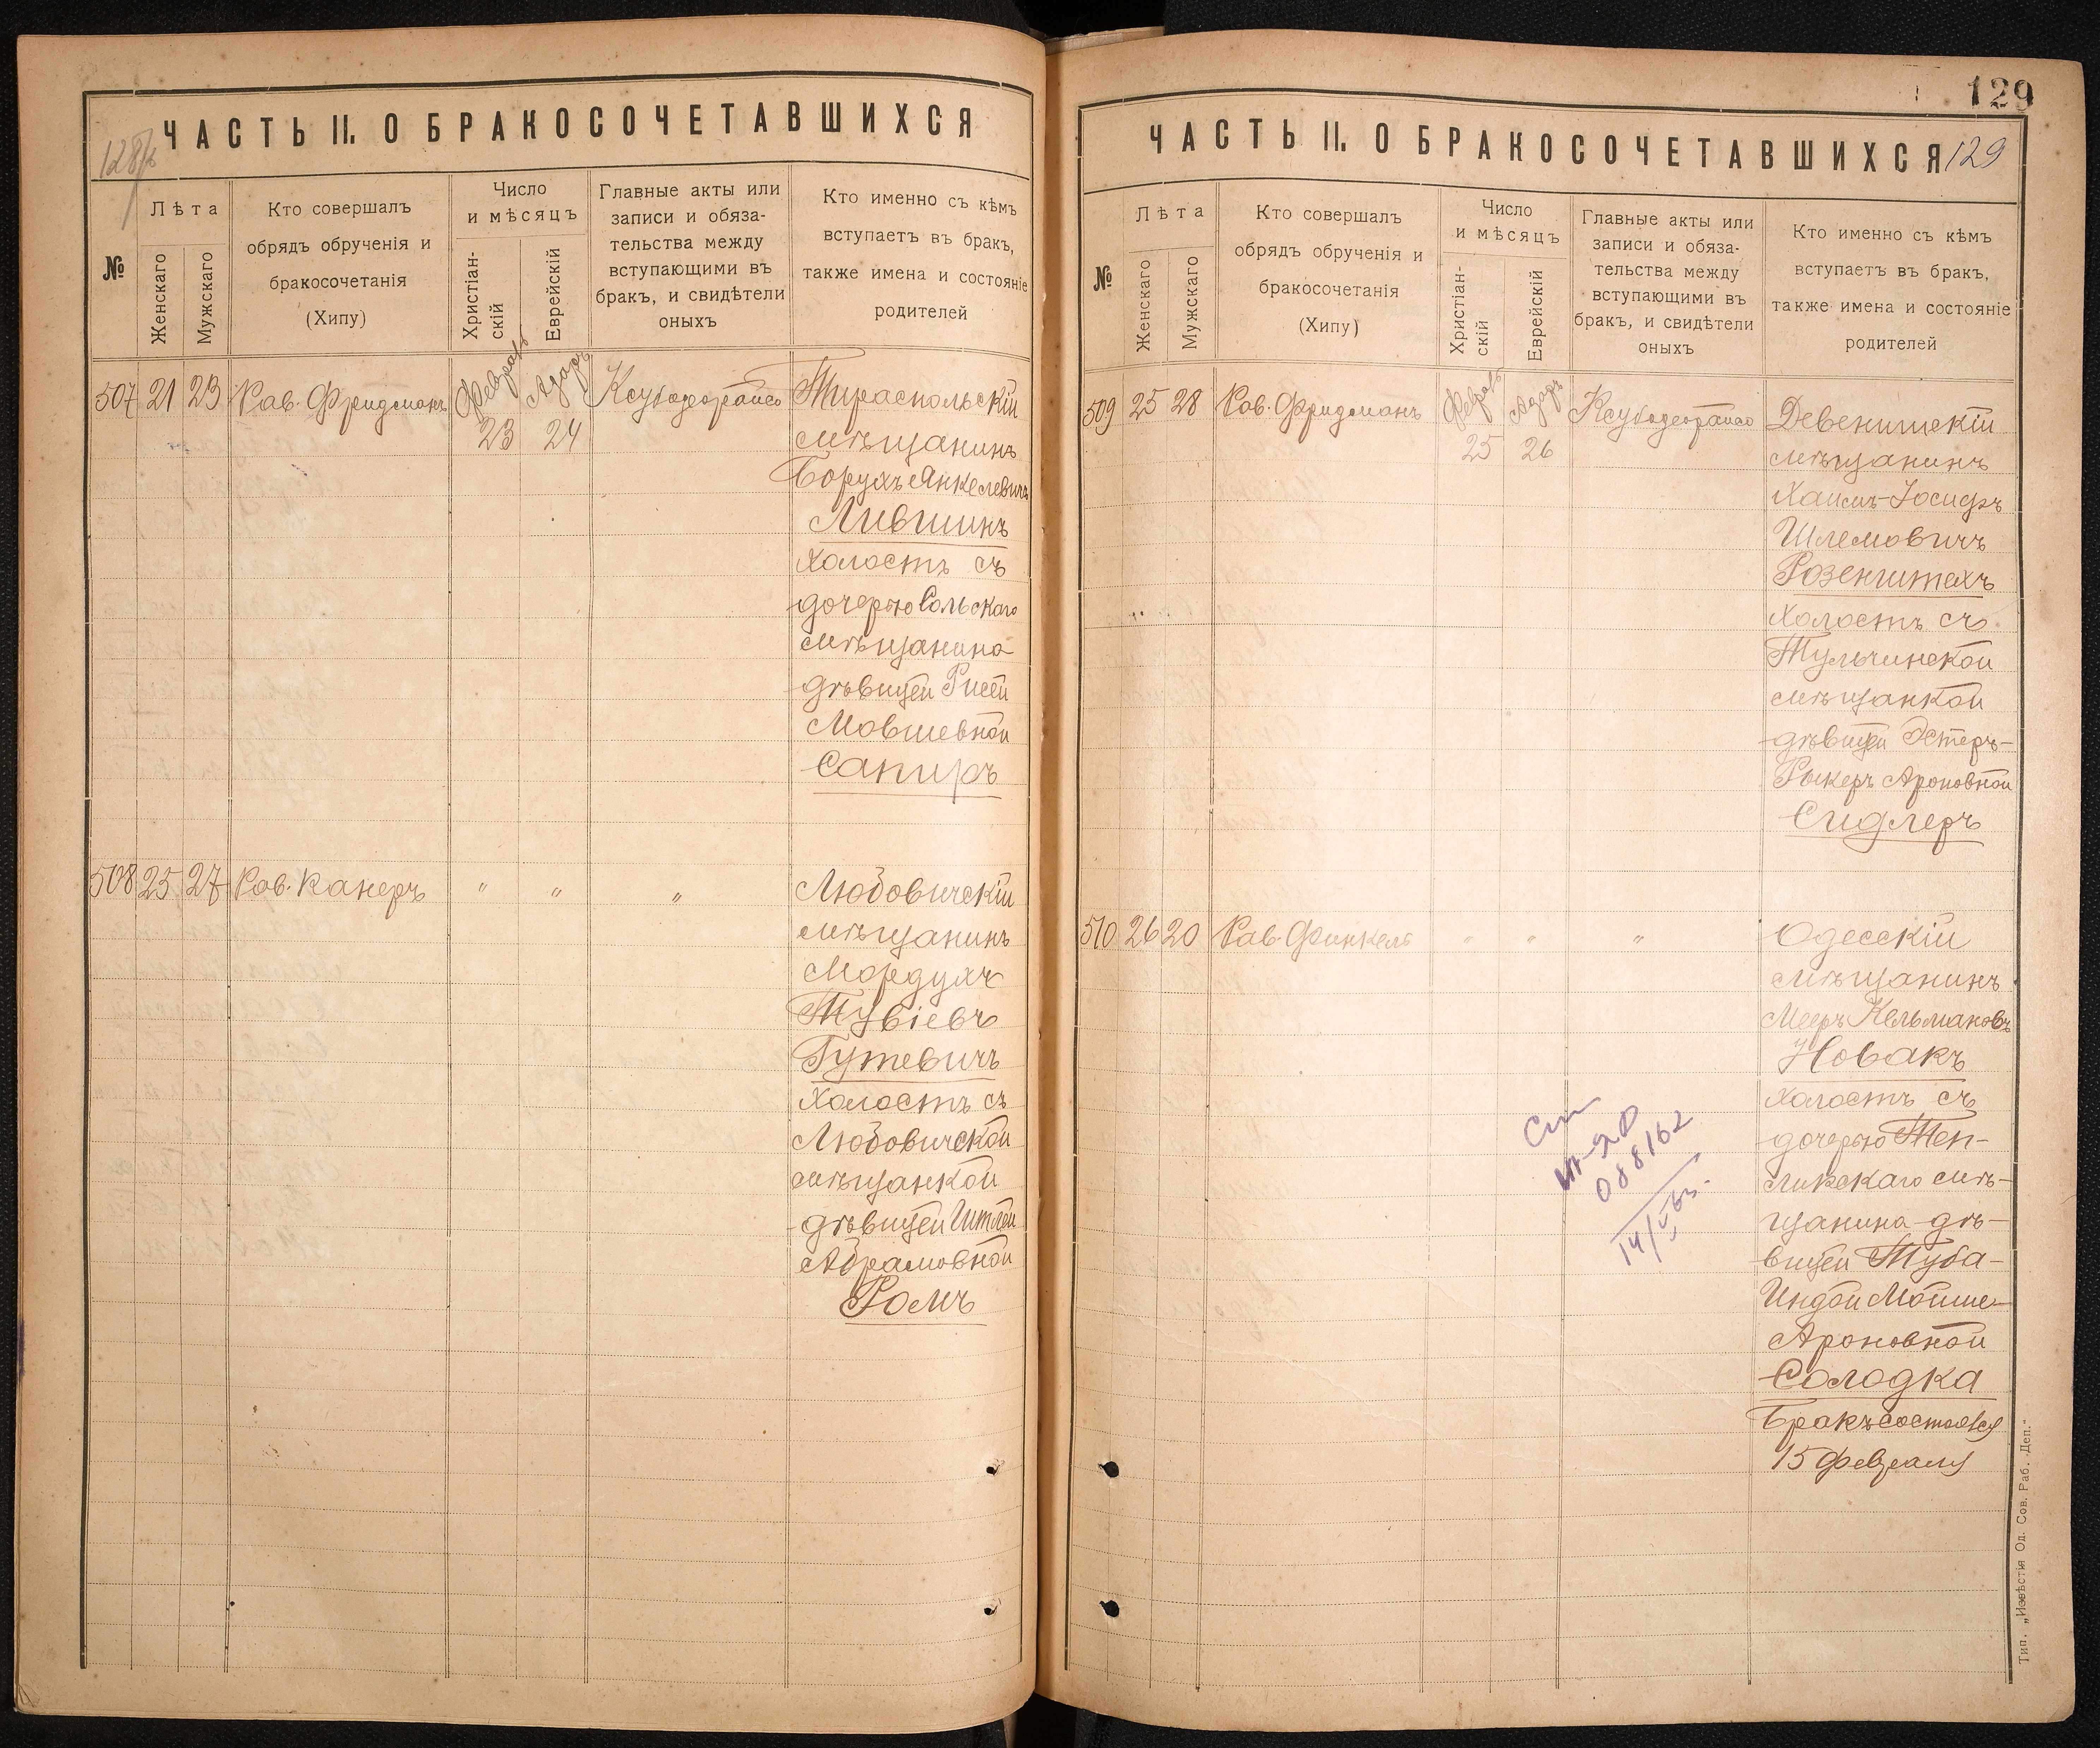 ЧАСТЬ II. О БРАКОСОЧЕТАВШИХСЯ
№
Лѣта
Женскаго
Мужскаго
Кто совершалъ
обрядъ обрученія и
бракосочетанія
(Хипу)
Число
и мѣсяцъ
Христіан-
скій
Еврейскій
Главные акты или
записи и обяза-
тельства между
вступающими въ
бракъ, и свидѣтели
оныхъ
Кто именно съ кѣмъ
вступаетъ въ бракъ,
также имена и состояніе
родителей
507 21 23 Рав. Фридманъ
23 24
Тираспольскій
мѣщанинъ
Борухъ Янкелевичъ
Лившинъ
холостъ съ
дочерью Сольскаго
мѣщанина
дѣвицей Рисей
Мовшевной
Сапиръ
508 25 27 Рав. Канеръ " " "
Любовичскій
мѣщанинъ
Мордухъ
Тувіевъ
Гутевичъ
холостъ съ
Любовичской
мѣщанкой
дѣвицей Итлей
Абрамовной
Ромъ
129
ЧАСТЬ II. О БРАКОСОЧЕТАВШИХСЯ 129
№
Лѣта
Женскаго
Мужскаго
Кто совершалъ
обрядъ обрученія и
бракосочетанія
(Хипу)
Число
и мѣсяцъ
Христіан-
скій
Еврейскій
Главные акты или
записи и обяза-
тельства между
вступающими въ
бракъ, и свидѣтели
оныхъ
Кто именно съ кѣмъ
вступаетъ въ бракъ,
также имена и состояніе
родителей
509 25 28 Рав. Фридманъ
25 26
Девенишскій
мѣщанинъ
Хаимъ-Іосифъ
Шлемовичъ
Розенштехъ
холостъ съ
Тульчинской
мѣщанкой
дѣвицей Эстеръ-
Рыкеръ Ароновной
Сидлеръ
510 26 20 Рав. Финкель " " "
Одесскій
мѣщанинъ
Мееръ Кельмановъ
Новакъ
холостъ съ
дочерью Теп-
ликскаго мѣ-
щанина дѣ-
вицей Туба-
Индой Мойше-
Ароновной
Солодка
Бракъ состоялся
15 февраля
088162
Тип. „Извѣстія Од. Сов. Раб. Деп."